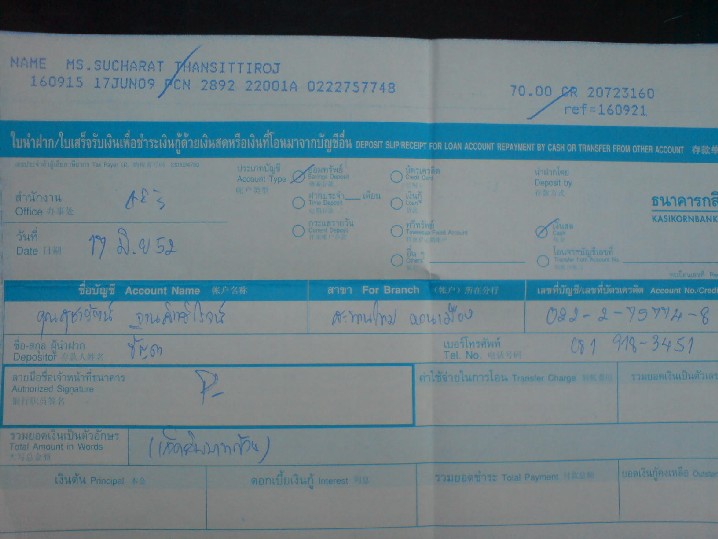 NAME MS.SUCHARAT THANSITTIROJ
160915 17JUN09 PCN 2892 22001A 0222757748
70.00 CR 20723160
ref=160921
ใบนำฝาก/ใบเสร็จรับเงินเพื่อชำระเงินกู้ด้วยเงินสดหรือเงินที่โอนมาจากบัญชีอื่น DEPOSIT SLIP/RECEIPT FOR LOAN ACCOUNT REPAYMENT BY CASH OR TRANSFER FROM OTHER ACCOUNT
ประเภทบัญชี Account Type 帐户类型
ออมทรัพย์ Savings Deposit
ฝากประจำ เดือน Time Deposit
กระแสรายวัน Current Deposit
บัตรเครดิต Credit Card
เงินกู้ Loan
อื่น ๆ Others
นำฝากโดย Deposit by
เงินสด Cash
โอนจากบัญชีเลขที่ Transfer from Account No.
ธนาคารกสิ
KASIKORNBANK
สำนักงาน Office
วันที่ Date 日期 17 มิ.ย 52
ชื่อบัญชี Account Name 帐户名称
สาขา For Branch (帐户)所在分行
เลขที่บัญชี/เลขที่บัตรเครดิต Account No./Credi
สะพานใหม่ ดอนเมือง
022-2-75774-8
ชื่อ-สกุล ผู้นำฝาก Depositor
เบอร์โทรศัพท์ Tel. No. 电话号码 081 918-3451
ลายมือชื่อเจ้าหน้าที่ธนาคาร Authorized Signature
ค่าใช้จ่ายในการโอน Transfer Charge
รวมยอดเงินเป็นตัวเล
รวมยอดเงินเป็นตัวอักษร Total Amount in Words 大写总金额
(เจ็ดสิบบาทถ้วน)
เงินต้น Principal 本金
ดอกเบี้ยเงินกู้ Interest 利息
รวมยอดชำระ Total Payment
ยอดเงินกู้คงเหลือ Outsta